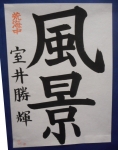 風景
室井勝輝